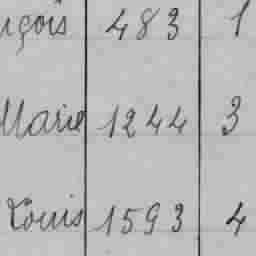 çois 483 1
Marie 1244 3
Louis 1593 4